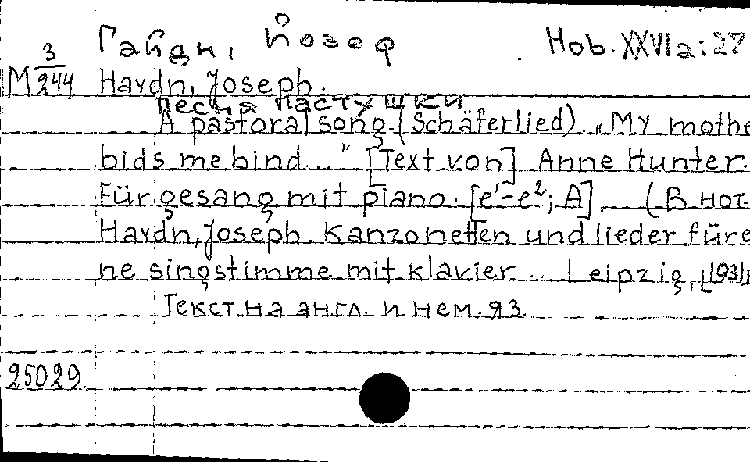 Гайдн, Йозеф Hob. XXVIa:27
М 3/244 Haydn, Joseph.
Песня пастушки
A pastoral song (Schäferlied) „My mothe
bids me bind..." [Text von] Anne Hunter.
Für gesang mit piano. [e¹-e²; A]. (В нот.
Haydn, Joseph Kanzonetten und lieder für e
ne singstimme mit klavier... Leipzig, [1931
Текст на англ. и нем. яз.
25029